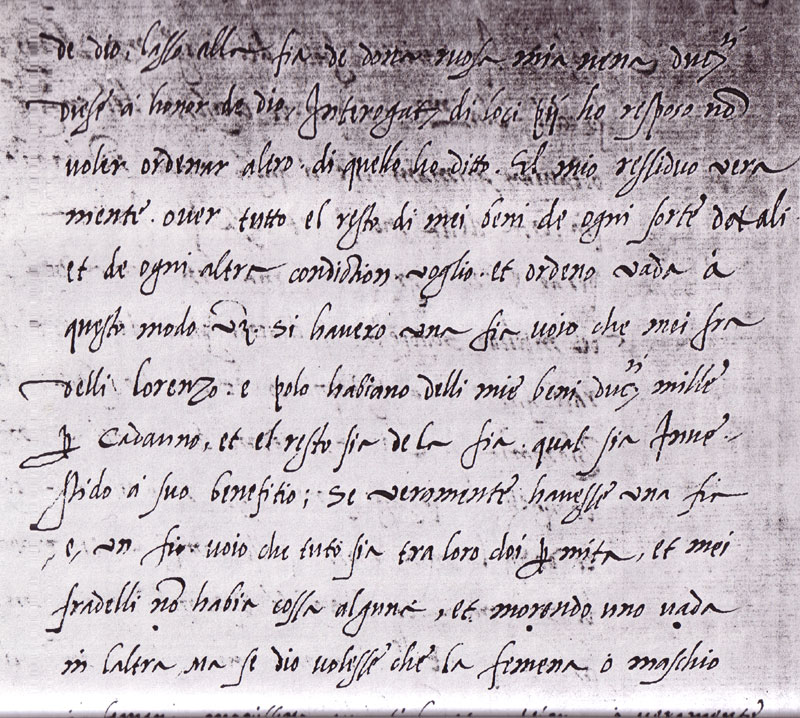 de dio. lasso alla fia de dona mia nena duc.ti
diese a honor de dio. Interogat di loci pij ho resposo nõ
voler ordenar altro. di quello ho ditto. El mio ressiduo vera
mente. over tutto el resto di mei beni de ogni sorte dotali
et de ogni altra condiction voglio. et ordeno vada à
questo modo si havero una fia voio che mei fra
delli lorenzo. e polo habiano delli mie beni duc.ti mille
ꝑ cadauno, et el resto sia de la fia. qual sia Inve-
stido a suo benefitio; Se veramente havesse una fia
e, un fio voio che tuto sia tra loro doi ꝑ mita, et mei
fradelli nõ habia cossa alguna, et morendo uno vada
in laltra, Ma se dio volesse che la femena o maschio